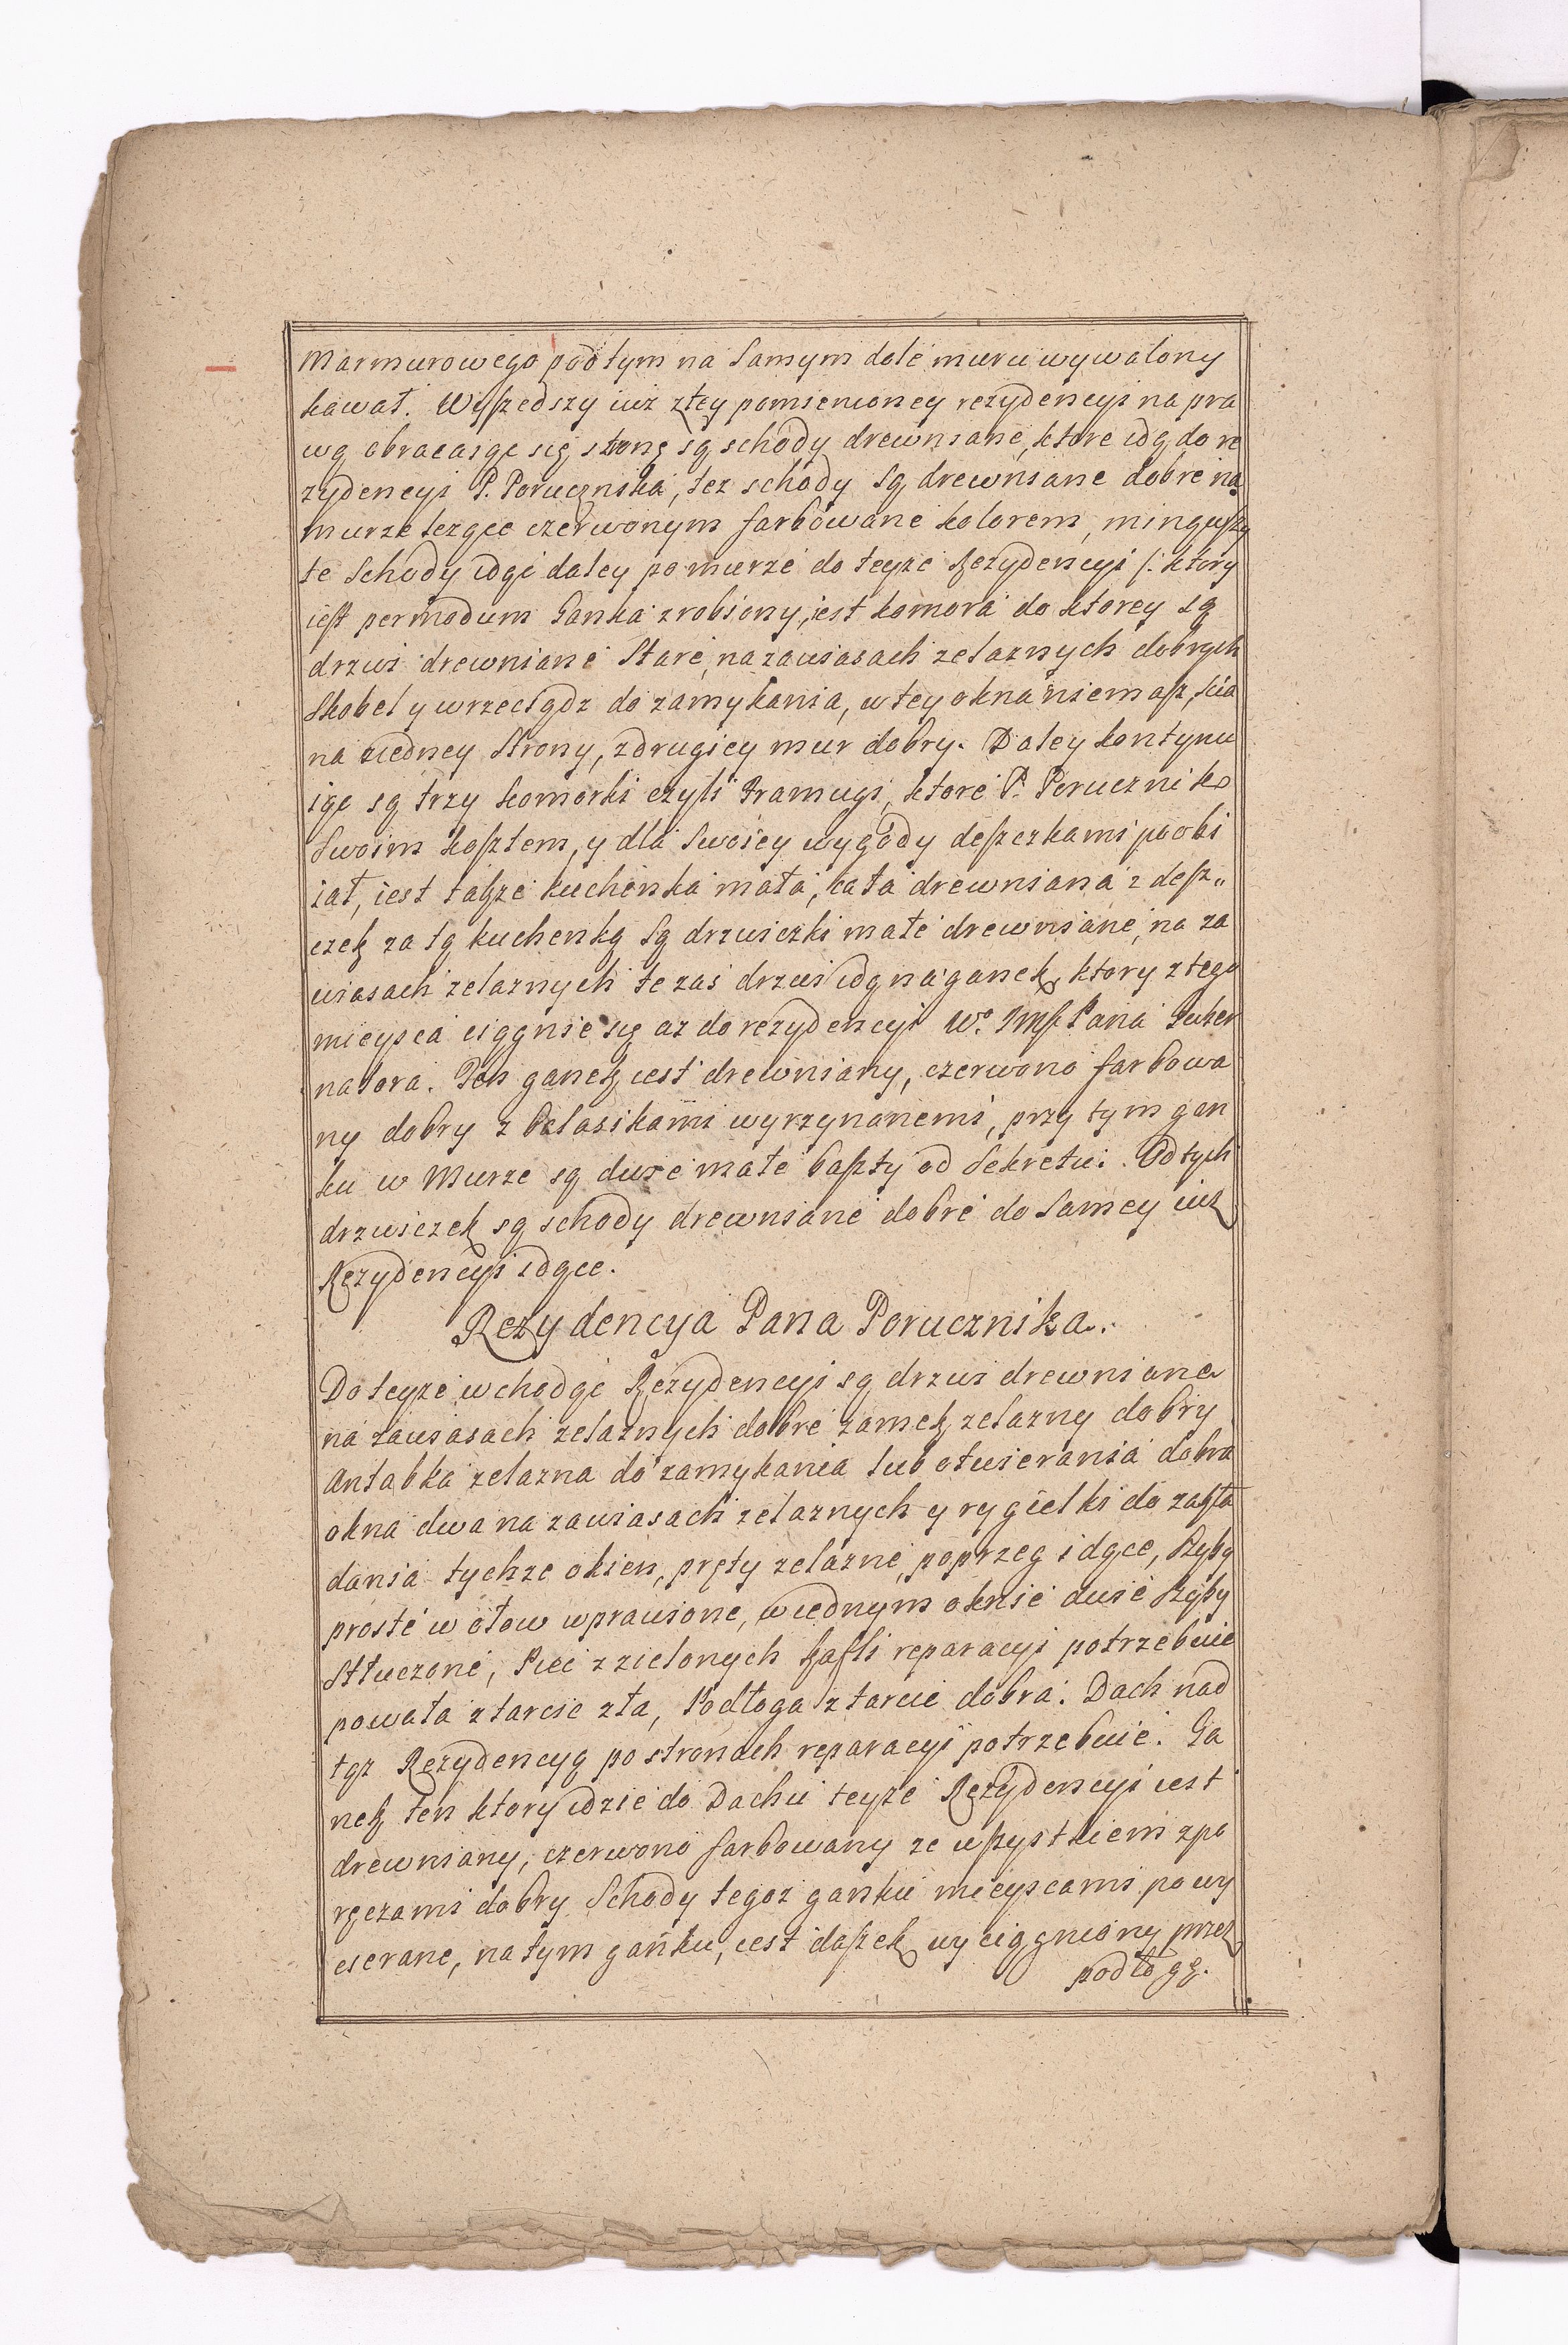 Marmurowego pod tym na Samym dole muru wywalony
kawał. Wyszedszy iuż ztey pomienioney rezydencyi na pra
wą obracaiąc się stronę są schody drewniane, ktore idą do re
zydencyi P. Porucznika, tez schody Są drewniane dobre na
murze lezące czerwonym farbowane kolorem, minąwszy
te Schody idąc daley po murze do teyze Rezydencyi /: ktory
iest permodum Ganka zrobiony, iest komora do ktorey są
drzwi drewniane Stare, na zawiasach zelaznych dobrych
Skobel y wrzeciądz do zamykania, w tey okna niemasz, scia
na z iedney Strony, z drugiey mur dobry. Daley kontynu
iąc są trzy komorki czyli framugi, ktore P. Porucznik
Swoim kosztem, y dla Swoiey wygody deszczkami poobi
iał, iest takze kuchenka mała, cała drewniana z desz„
czek za tą kuchenką Są drzwiczki małe drewniane, na za
wiasach zelaznych te zas drzwi idą na ganek, ktory z tego
mieysca ciągnie się az do rezydencyi Wo Jmsć Pana Guber
natora. Ten ganek iest drewniany, czerwono farbowa
ny dobry z balasikami wyrzynanemi, przy tym gan
ku w Murze są dwie małe baszty od Sekretu. Od tych
drzwiczek są schody drewniane dobre do Samey iuż
Rezydencyi idące.
Rezydencya Pana Porucznika.
Do teyze wchodąc Rezydencyi są drzwi drewniane
na zawiasach zelaznych dobre zamek zelazny dobry
Antabka zelazna do zamykania lub otwierania dobra
okna dwa na zawiasach zelaznych y rygielki do zakła
dania tychze okien, pręty zelazne, poprzeg idące, Szyby
proste w ołow wprawione, w iednym oknie dwie Szyby
Stłuczone, Piec z zielonych kafli reparacyi potrzebuie
powała z tarcic zła, Podłoga z tarcic dobra. Dach nad
tąz Rezydencyą po stronach reparacyi potrzebuie. Ga
nek ten ktory idzie do Dachu teyze Rezydencyi iest
drewniany, czerwono farbowany ze wszystkiem z po
ręczami dobry Schody tegoz ganku mieyscami powy
cierane, na tym ganku, iest daszek wyciągniony przez
podłogę.